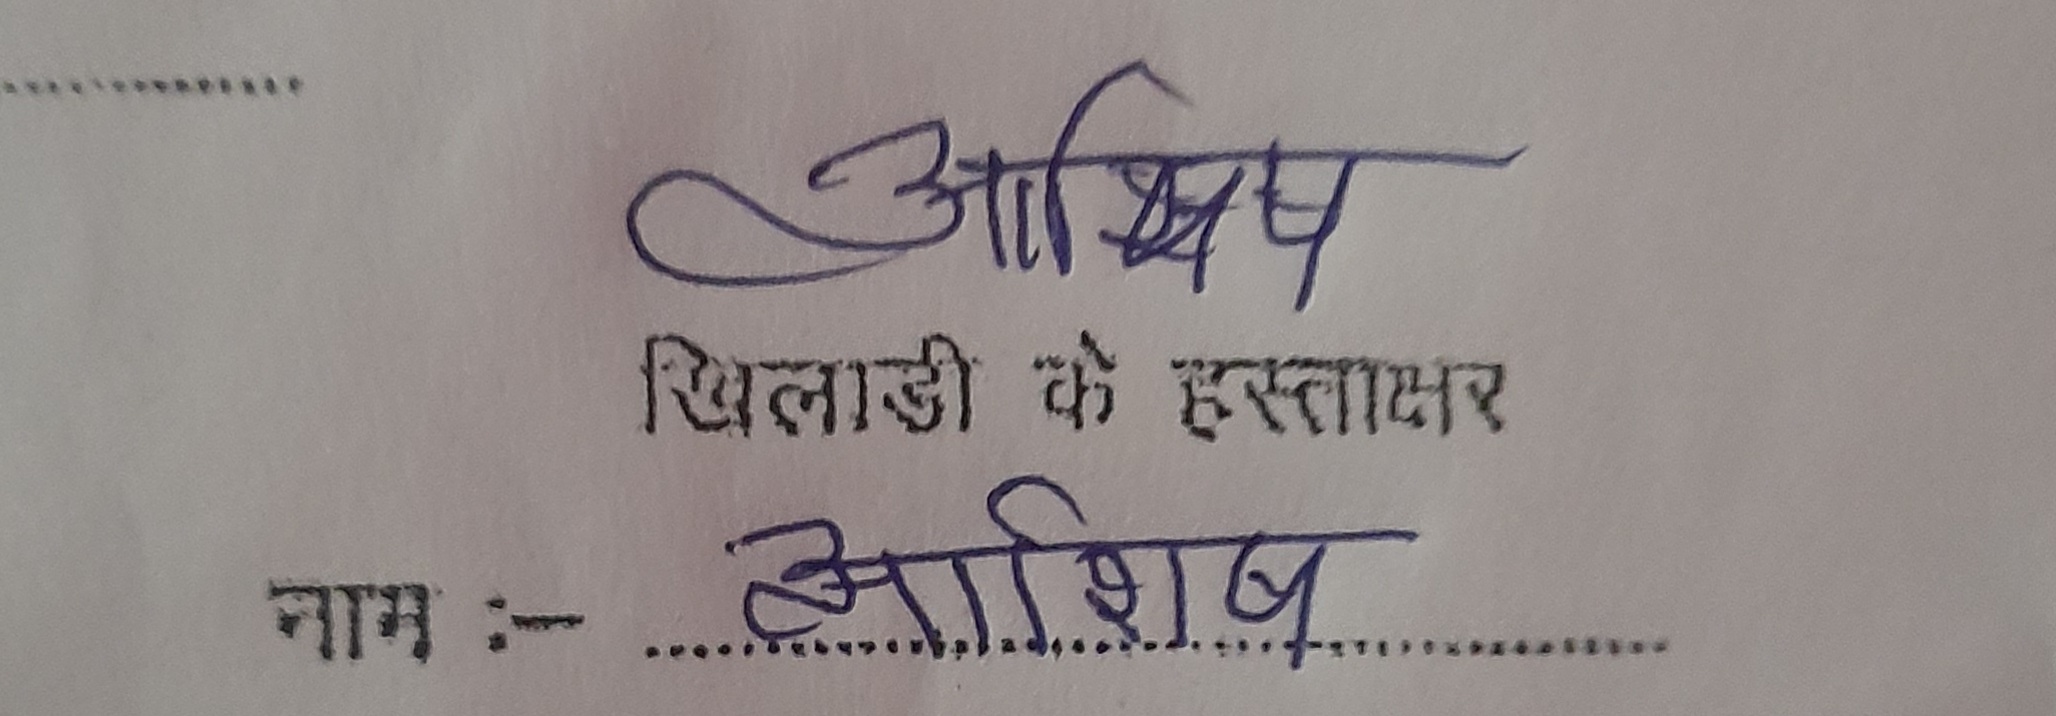 आशिष
खिलाडी के हस्ताक्षर
नाम :- आशिष